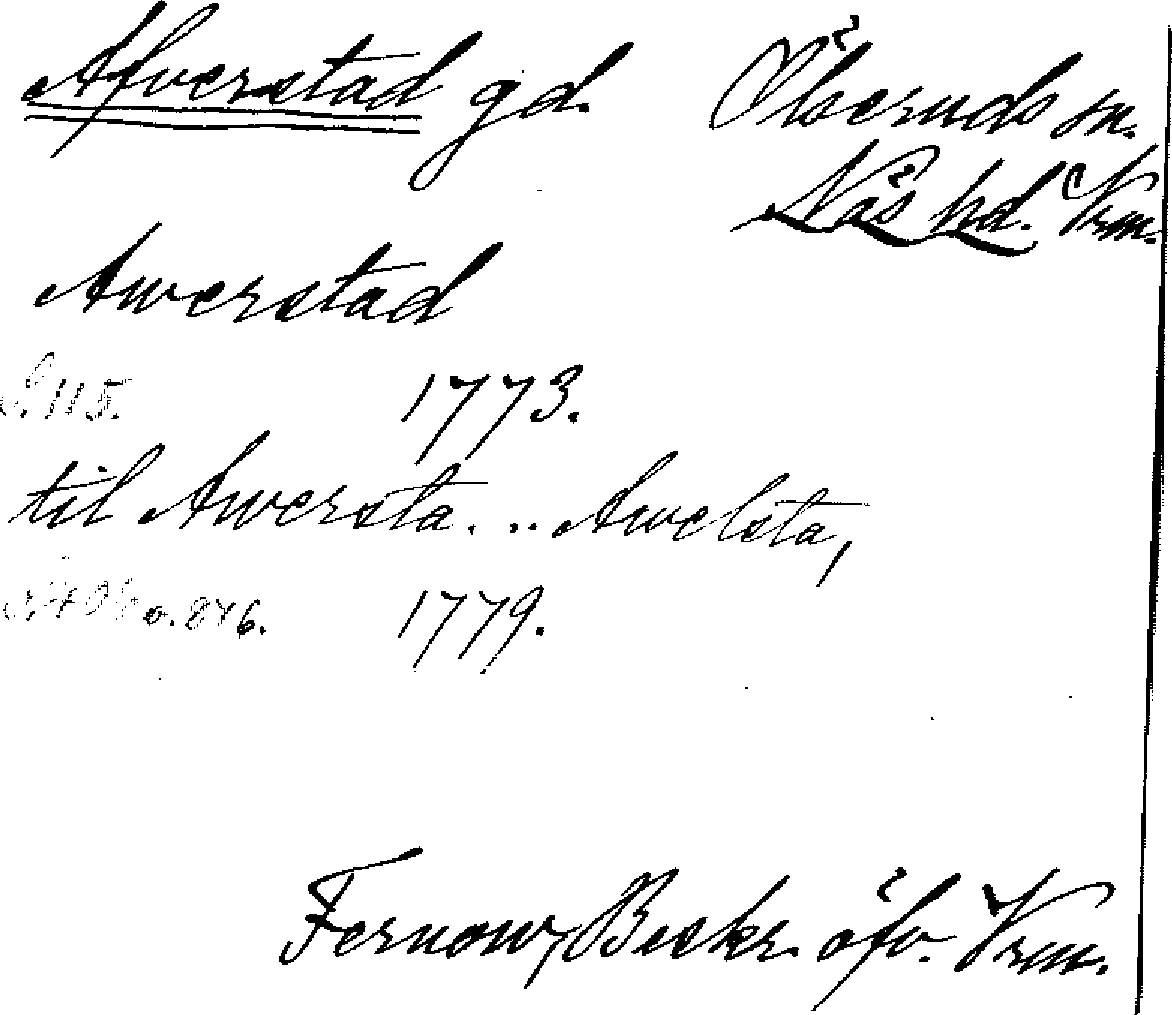 Afverstad gd. Ölseruds sn.
Näs hd. Vrm.
Awerstad
S. 115. 1773.
til Awersta. .. Awelsta,
o. 876. 1779.
Fernow, Beskr. öfv. Vrm.